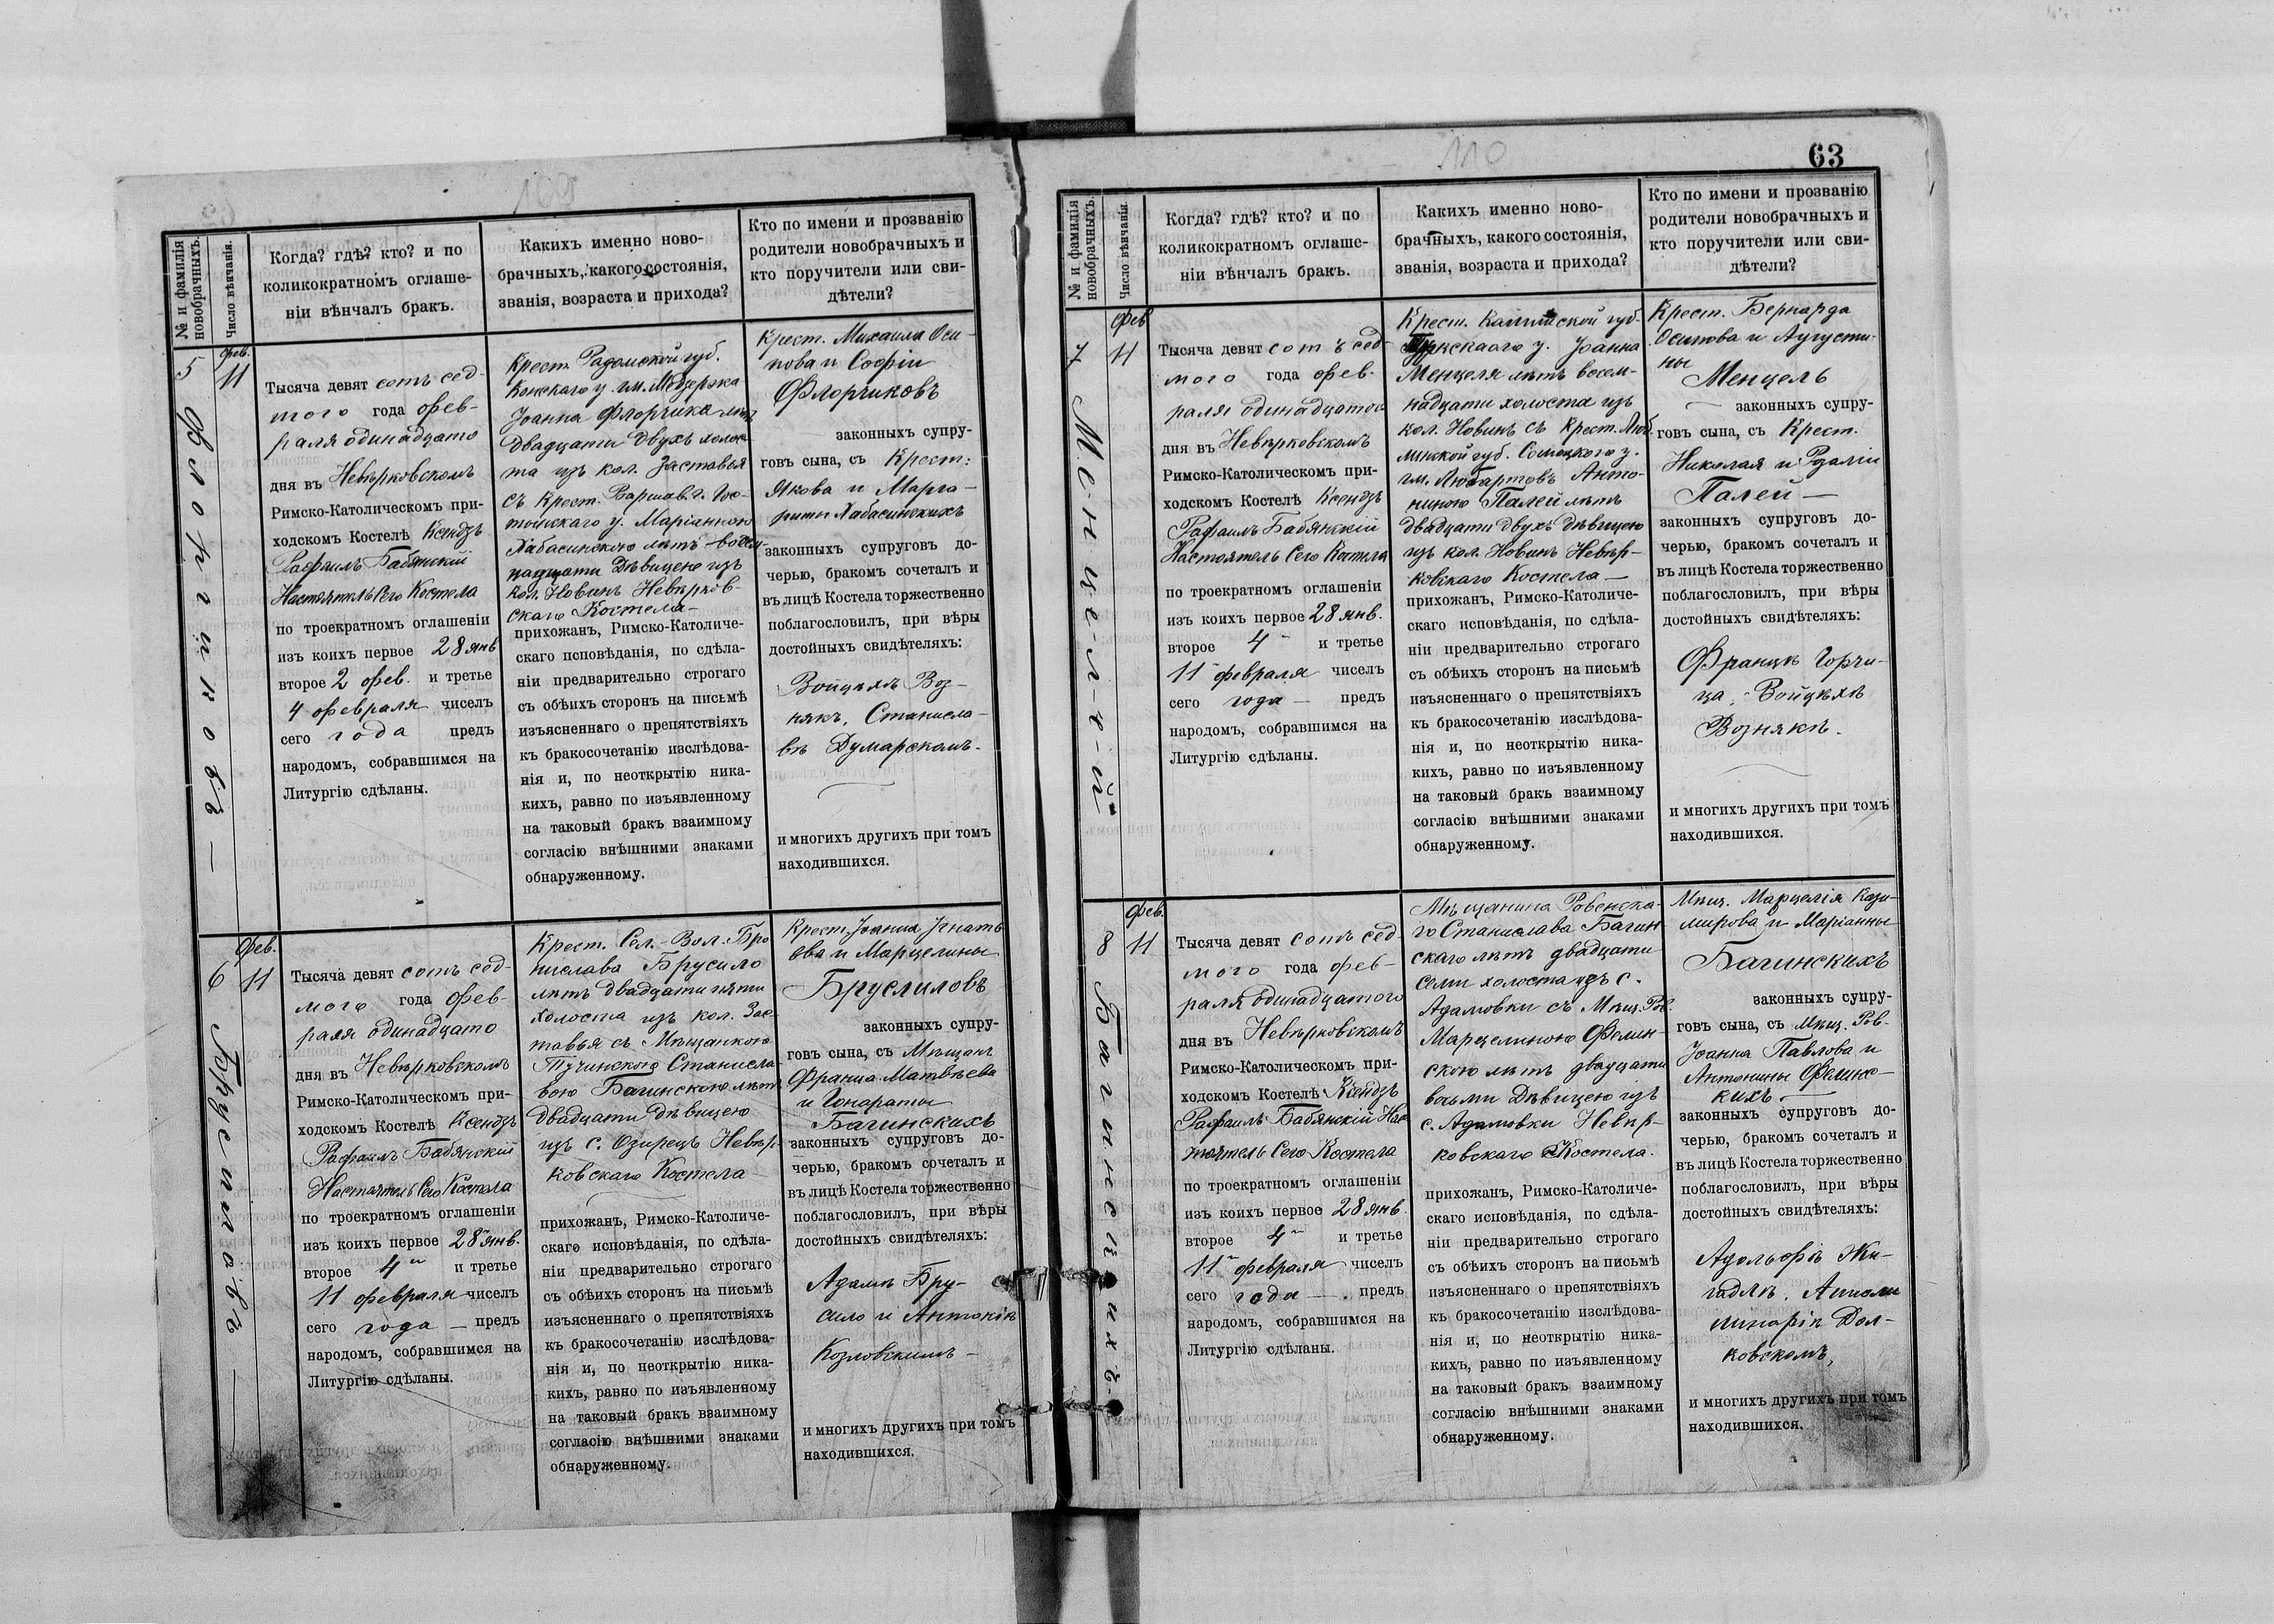 109
№ и фамилія новобрачныхъ.
Число вѣнчанія.
Когда? гдѣ? кто? и по
коликократномъ оглаше-
ніи вѣнчалъ бракъ.
Какихъ именно ново-
брачныхъ, какого состоянія,
званія, возраста и прихода?
Кто по имени и прозванію
родители новобрачныхъ и
кто поручители или сви-
дѣтели?
5
Флорчиковъ
фев.
11
Тысяча девят сотъ сед-
мого года фев-
раля одинадцато
дня въ Невѣрковскомъ
Римско-Католическомъ при-
ходскомъ Костелѣ Ксендзъ
Рафаилъ Бабянскій
Настоятель Сего Костела
по троекратномъ оглашеніи
изъ коихъ первое 28 янв
второе 2 фев. и третье
4 февраля чиселъ
сего года предъ
народомъ, собравшимся на
Литургію сдѣланы.
Крест. Радомской губ.
Конскаго у. гм.
Іоанна Флорчика лѣтъ
двадцати двухъ холос
та изъ кол. Заставья
съ Крест. Варшав. г. Гос-
тынскаго у. Маріанною
Хабасинскою лѣтъ восем-
надцати Дѣвицею изъ
кол. Новинъ Невѣрков-
скаго Костела -
прихожанъ, Римско-Католиче-
скаго псповѣданія, по сдѣла-
ніи предварительно строгаго
съ обѣихъ сторонъ на письмѣ
изъясненнаго о препятствіяхъ
къ бракосочетанію изслѣдова-
нія и, по неоткрытію ника-
кихъ, равно по изъявленному
на таковый бракъ взаимному
согласію внѣшними знаками
обнаруженному.
Крест. Михаила Оси-
пова и Софіи
Флорчиковъ
законныхъ супру-
говъ сына, съ Крест:
Якова и Марга-
риты Хабасинскихъ
законныхъ супруговъ до-
черью, бракомъ сочеталъ и
въ лицѣ Костела торжественно
поблагословилъ, при вѣры
достойныхъ свидѣтеляхъ:
Войцѣхѣ Воз-
някѣ, Станисла-
вѣ Думарскомъ -
и многихъ другихъ при томъ
находившихся.
6
Брусиловъ
Фев.
11
Тысяча девят сотъ сед-
мого года фев-
раля одинадцато
дня въ Невѣрковскомъ
Римско-Католическомъ при-
ходскомъ Костелѣ Ксендзъ
Рафаилъ Бабянскій
Настоятель Сего Костела
по троекратномъ оглашеніи
изъ коихъ первое 28 янв.
второе 4 и третье
11 февраля чиселъ
сего года — предъ
народомъ, собравшимся на
Литургію сдѣланы.
Крест. Сел. Вол. Бро
нислава Брусило
лѣтъ двадцати пяти
холоста изъ кол. Зас-
тавья съ Мѣщанкою
Тучинскою Станисла
вою Багинскою лѣтъ
двадцати Дѣвицею
изъ с. Озирецъ Невѣр-
ковскаго Костела
прихожанъ, Римско-Католиче-
скаго исповѣданія, по сдѣла-
ніи предварительно строгаго
съ обѣихъ сторонъ на письмѣ
изъясненнаго о препятствіяхъ
къ бракосочетанію изслѣдова-
нія и, по неоткрытію ника-
кихъ, равно по изъявленному
на таковый бракъ взаимному
согласію внѣшними знаками
обнаруженному.
Крест. Іоанна Игнать
ева и Марцелины
Брусиловъ
законныхъ супру-
говъ сына, съ Мѣщан
Франца Матвѣева
и Гонораты
Багинскихъ
законныхъ супруговъ до-
черью, бракомъ сочеталъ и
въ лицѣ Костела торжественно
поблагословилъ, при вѣры
достойныхъ свидѣтеляхъ:
Адамѣ Бру-
сило и Антонiѣ
Козловскимъ -
и многихъ другихъ при томъ
находившихся.
110
63
№ и фамилія новобрачныхъ.
Число вѣнчанія.
Когда? гдѣ? кто? и по
коликократномъ оглаше-
ніи вѣнчалъ бракъ.
Какихъ именно ново-
брачныхъ, какого состоянія,
званія, возраста и прихода?
Кто по имени и прозванію
родители новобрачныхъ и
кто поручители или сви-
дѣтели?
7
Менцелей
Фев
11
Тысяча девят сотъ сед-
мого года фев-
раля одинадцатого
дня въ Невѣрковскомъ
Римско-Католическомъ при-
ходскомъ Костелѣ Ксендзъ
Рафаилъ Бабянскій
Настоятель Сего Костела
по троекратномъ оглашеніи
изъ коихъ первое 28 янв.
второе 4 и третье
11 февраля чиселъ
сего года — предъ
народомъ, собравшимся на
Литургію сдѣланы.
Крест. Калишской губ.
у. Іоанна
Менцеля лѣтъ восем-
надцати холоста изъ
кол. Новинъ съ Крест. Люб-
линской губ.
гм. Любартовъ Анто-
ниною Палей лѣтъ
двадцати двухъ дѣвицею
изъ кол. Новинъ Невѣр-
ковскаго Костела —
прихожанъ, Римско-Католиче-
скаго исповѣданія, по сдѣла-
ніи предварительно строгаго
съ обѣихъ сторонъ на письмѣ
изъясненнаго о препятствіяхъ
къ бракосочетанію изслѣдова-
нія и, по неоткрытію ника-
кихъ, равно по изъявленному
на таковый бракъ взаимному
согласію внѣшними знаками
обнаруженному.
Крест. Бернарда
Осипова и Аугусти-
ны
Менцель
законныхъ супру-
говъ сына, съ Крест.
Николая и Розаліи
Палей —
законныхъ супруговъ до-
черью, бракомъ сочеталъ и
въ лицѣ Костела торжественно
поблагословилъ, при вѣры
достойныхъ свидѣтеляхъ:
Францѣ Горчи-
ца, Войцѣхѣ
Вознякѣ.
и многихъ другихъ при томъ
находившихся.
8
Багинскихъ
Фев.
11
Тысяча девят сотъ сед-
мого года фев-
раля одинадцатого
дня въ Невѣрковскомъ
Римско-Католическомъ при-
ходскомъ Костелѣ Ксендзъ
Рафаилъ Бабянскій Нас
тоятель Сего Костела
по троекратномъ оглашеніи
изъ коихъ первое 28 янв.
второе 4 и третье
11 февраля чиселъ
сего года — предъ
народомъ, собравшимся на
Литургію сдѣланы.
Мѣщанина Ровенска-
го Станислава Багин-
скаго лѣтъ двадцати
семи холоста изъ с.
Адамовки съ Мѣщ. Ров.
Марцелиною Фелин-
скою лѣтъ двадцати
восьми Дѣвицею изъ
с. Адамовки Невѣр-
ковскаго Костела.
прихожанъ, Римско-Католиче-
скаго исповѣданія, по сдѣла-
ніи предварительно строгаго
съ обѣихъ сторонъ на письмѣ
изъясненнаго о препятствіяхъ
къ бракосочетанію изслѣдова-
нія и, по неоткрытію ника-
кихъ, равно по изъявленному
на таковый бракъ взаимному
согласію внѣшними знаками
обнаруженному.
Мѣщ. Марцелія Кази-
мирова и Маріанны
Багинскихъ
законныхъ супру-
говъ сына, съ Мѣщ. Ров-
Іоанна Павлова и
Антонины Фелинс-
кихъ —
законныхъ супруговъ до-
черью, бракомъ сочеталъ и
въ лицѣ Костела торжественно
поблагословилъ, при вѣры
достойныхъ свидѣтеляхъ:
Адольфѣ Жи-
гадлѣ, Аполи
линаріѣ Дол-
ковскомъ,
и многихъ другихъ при томъ
находившихся.